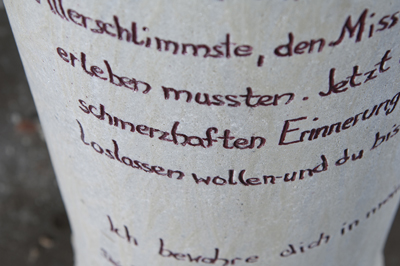 Allerschlimmste, den Miss
erleben mussten. Jetzt
schmerzhaften Erinnerung
loslassen wollen-und du bis
Ich bewahre dich in